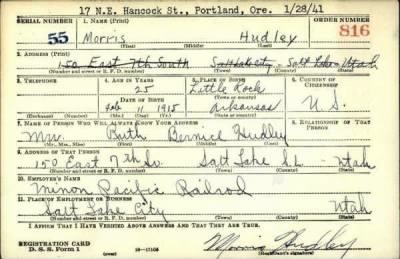 17 N.E. Hancock St., Portland, Ore. 1/28/41
SERIAL NUMBER 1. NAME (Print) ORDER NUMBER
55 Morris Hudley 816
(First) (Middle) (Last)
2. ADDRESS (Print)
150 East 7th South Salt Lake City Salt Lake Utah
(Number and street or R. F. D. number) (Town) (County) (State)
3. TELEPHONE 4. AGE IN YEARS 5. PLACE OF BIRTH 6. COUNTRY OF CITIZENSHIP
25 Little Rock
DATE OF BIRTH (Town or county)
Feb 1915 Arkansas U.S.
(Exchange) (Number) (Mo.) (Day) (Yr.) (State or country)
7. NAME OF PERSON WHO WILL ALWAYS KNOW YOUR ADDRESS 8. RELATIONSHIP OF THAT PERSON
Ruth Bernice Hudley
(Mr., Mrs., Miss) (First) (Middle) (Last)
9. ADDRESS OF THAT PERSON
150 East 7th So. Salt Lake S.L. Utah
(Number and street or R. F. D. number) (Town) (County) (State)
10. EMPLOYER'S NAME
Pacific
11. PLACE OF EMPLOYMENT OR BUSINESS
Salt Lake City Utah
(Number and street or R. F. D. number) (Town) (County) (State)
I AFFIRM THAT I HAVE VERIFIED ABOVE ANSWERS AND THAT THEY ARE TRUE.
REGISTRATION CARD
D. S. S. Form 1 16—17105 Morris Hudley
(over) (Registrant's signature)